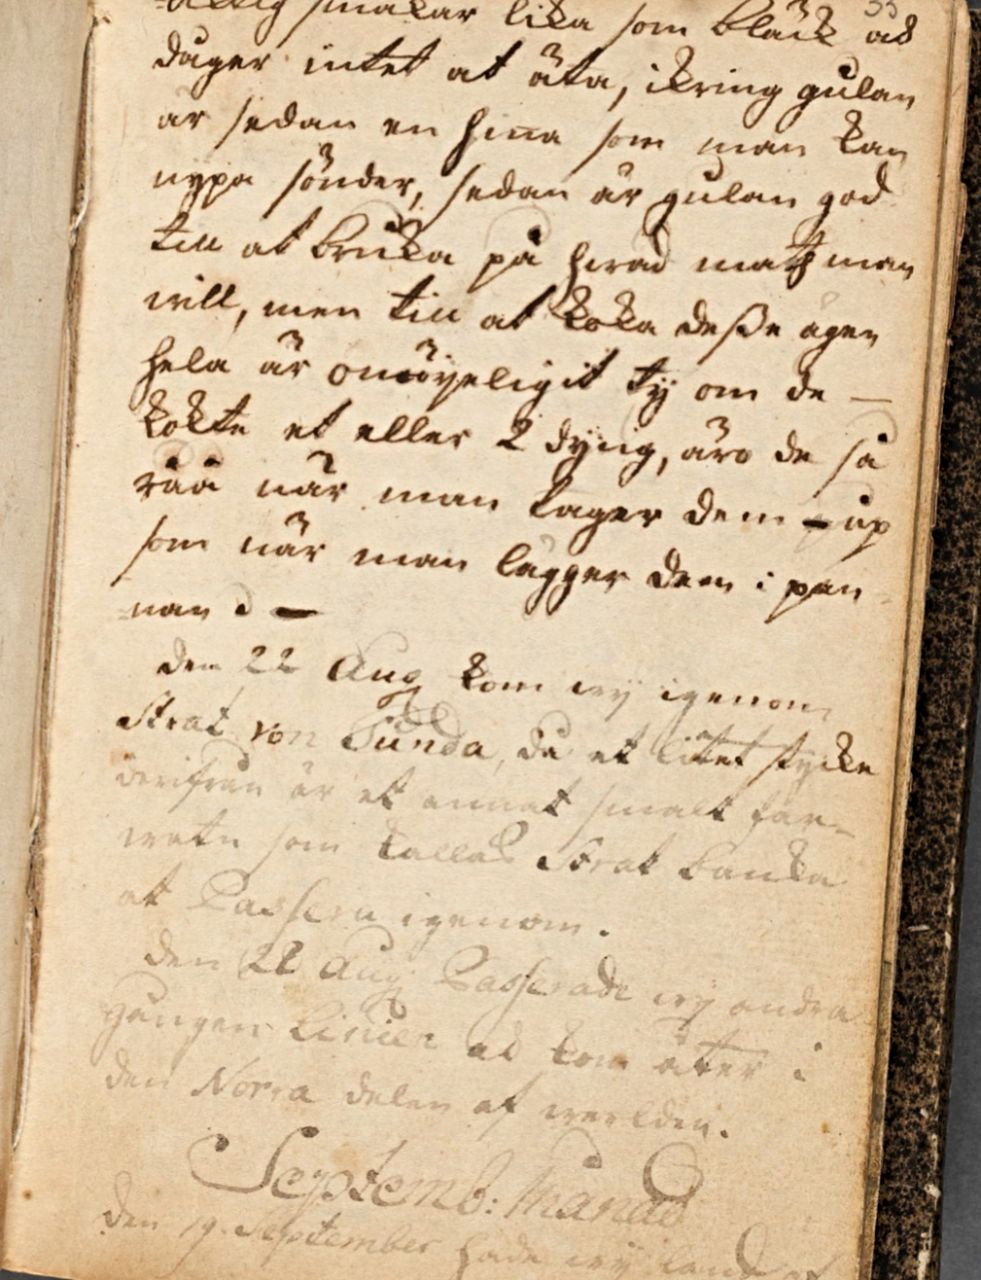 smakar lika som bläck ok
duger intet at äta, ikring gulan
är sedan en hina som man kan
nypa sönder, sedan är gulan god
till at bruka på hwad math man
will, men till at koka deße ägen
hela är omöyeligit ty om de —
kokte et eller 2 dyng, äro de så
råå när man tager dem up
som när man lägger dem i pan
nan —
den 22 Aug kom wy igenom
Strat von Sunda, da et litet stycke
derifrån är et annat smalt far-
watn som kallas Strat Banka
at Passera igenom.
den 28 Aug Passerade wy andra
gången Linien ok kom åter i
den Norra delen af werlden.
Septemb: Månad
den 9. September hade wy land af